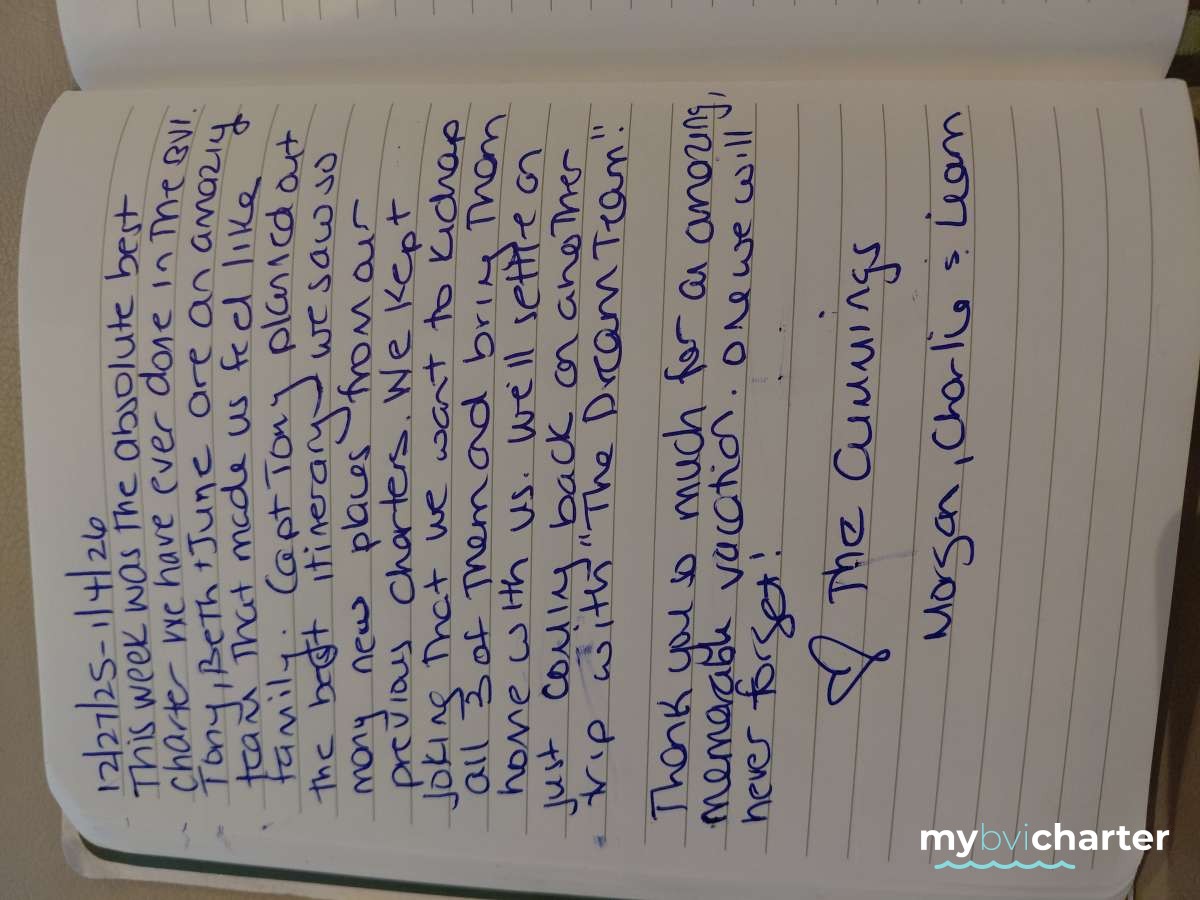 12/27/25-1/4/26
This week was the absolute best
charter we have ever done in the BVI.
Tony, Beth + June are an amazing
team that made us feel like
family. Capt Tony planned out
the best itinerary, we saw so
many new places from our
previous charters. We kept
joking that we want to kidnap
all 3 of them and bring them
home with us. We'll settle on
just coming back on another
trip with "The Dream Team".
Thank you so much for an amazing,
memorable vacation. One we will
never forget!
The Cummings
Morgan, Charlie & Liam
mybvicharter